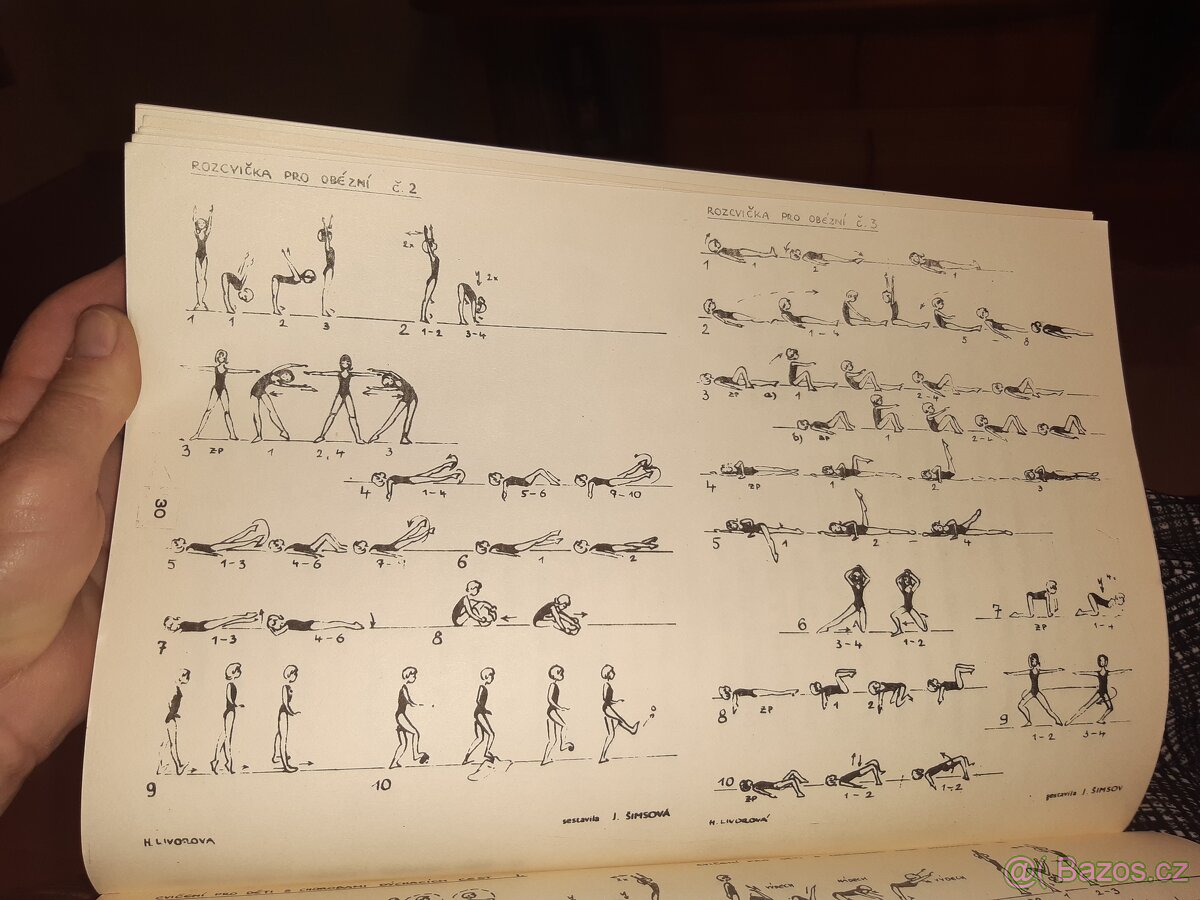 ROZCVIČKA PRO OBÉZNÍ Č. 2
1 1 2 3 2x 2 1-2 3-4 2x
3 ZP 1 2, 4 3
4 1-4 5-6 9-10
30
5 1-3 4-6 7- 6 1 2
7 1-3 4-6 8
9 10
sestavila J. ŠIMSOVÁ
H. LIVOROVA
ROZCVIČKA PRO OBÉZNÍ Č. 3
1 1 2 1
2 1-4 5 8
3 ZP a) 1 2-4
b) ZP 1 2-4
4 ZP 1 2 3
5 1 2 4
6 3-4 1-2 7 ZP 1-4
8 ZP 1 2 9 1-2 3-4
10 ZP 1-2 1-2
sestavila J. ŠIMSOV
H. LIVOROVÁ
CVIČENÍ PRO DĚTI S CHOROBAMI DÝCHACÍCH CEST
2x VÝDECH 2-3
@ Bazos.cz